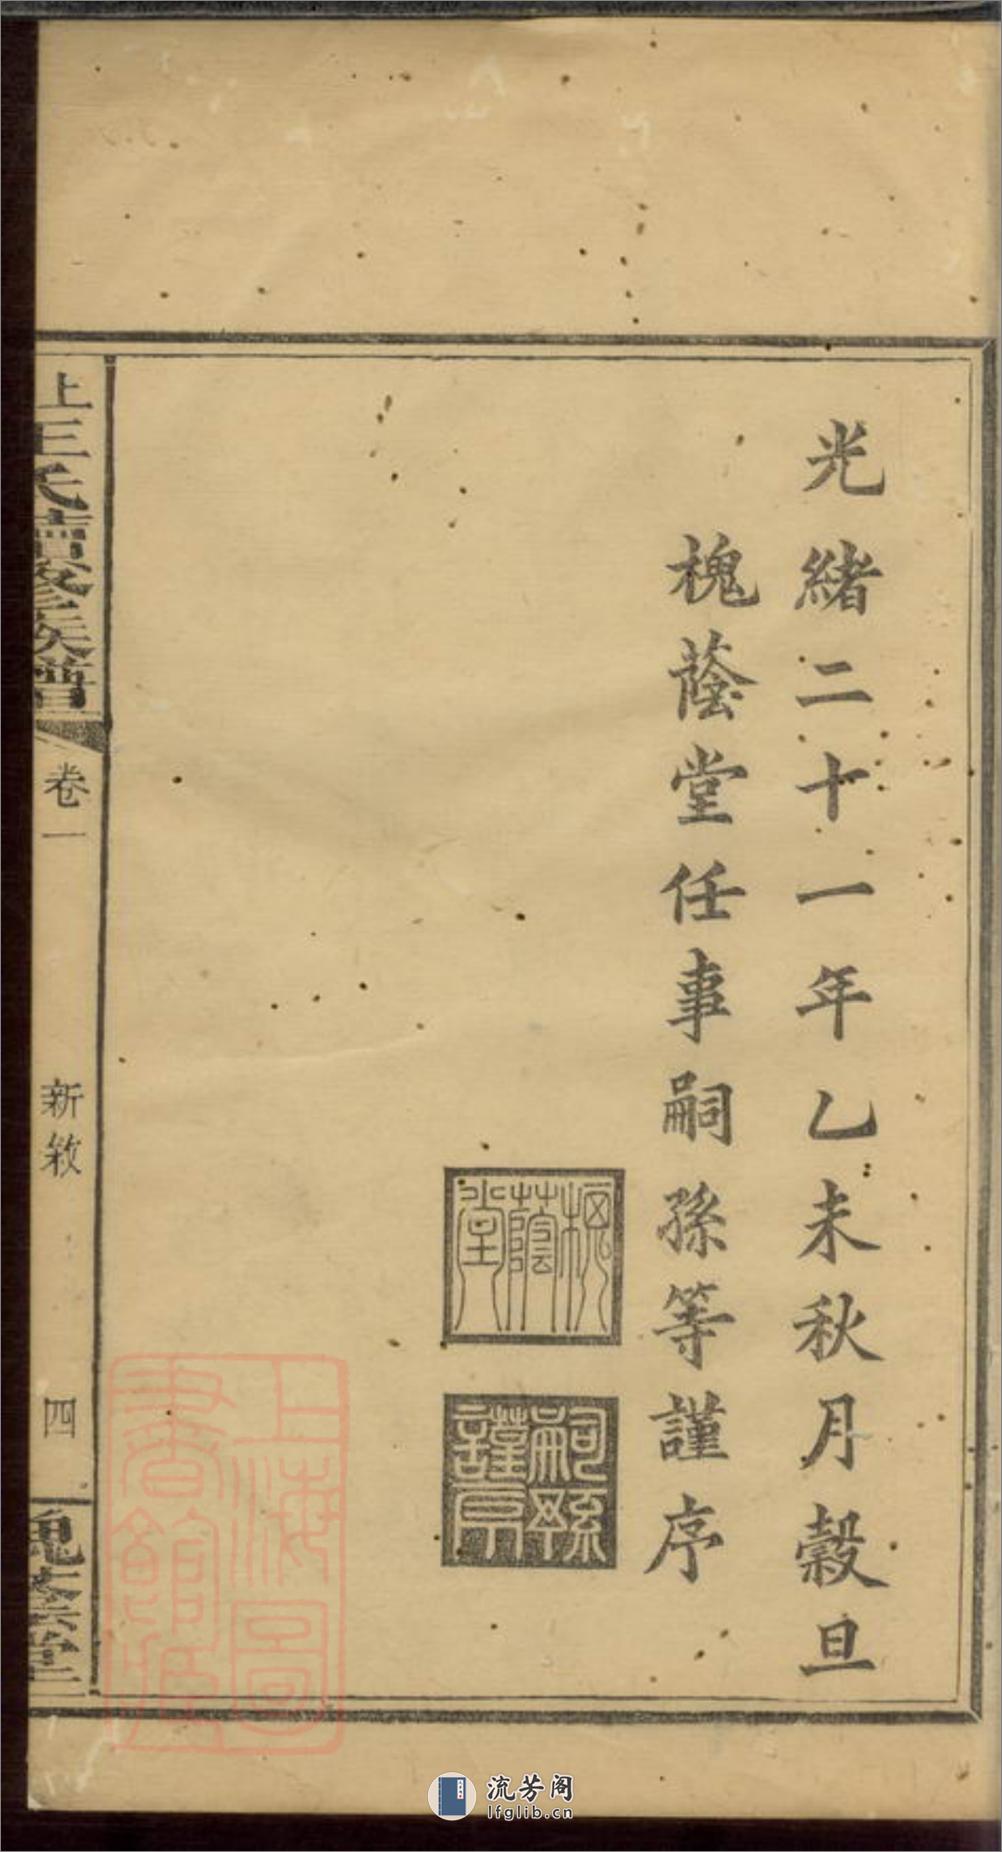 光緒二十一年乙未秋月穀旦
槐蔭堂任事嗣孫等謹序
槐蔭堂
嗣孫謹序
上王氏續修族譜
卷一
新敘
四
槐蔭堂
上海圖書館藏
流芳阁
lfglib.cn